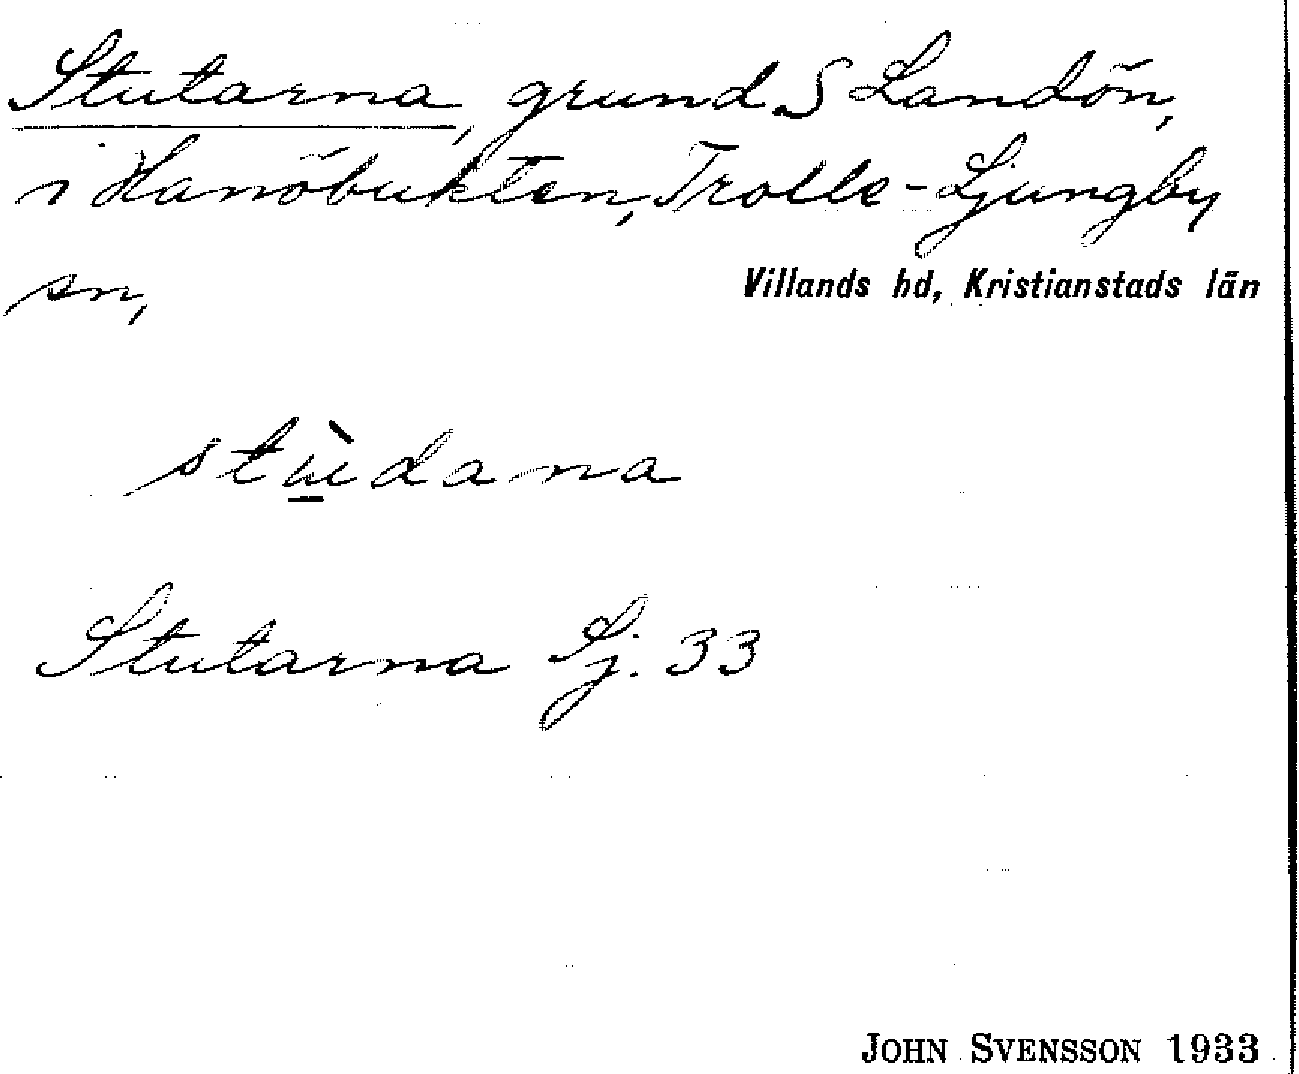 Stutarna, grund S Landön,
i Hanöbukten, Trolle-Ljungby
sn,
Villands hd, Kristianstads län
stù̱dana
Stutarna Sj. 33
JOHN SVENSSON 1933